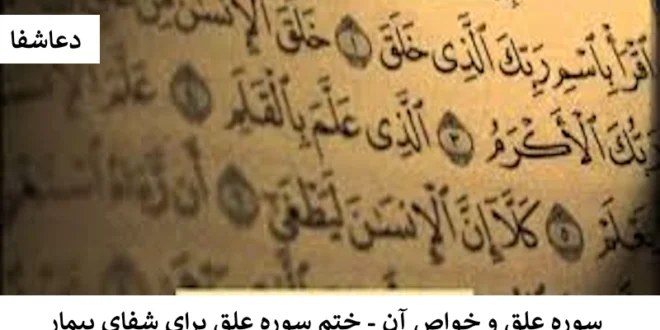 دعاشفا
ٱقْرَأْ بِٱسْمِ رَبِّكَ ٱلَّذِى خَلَقَ ١ خَلَقَ ٱلْإِنسَٰنَ مِنْ
رَبُّكَ ٱلْأَكْرَمُ ٣ ٱلَّذِى عَلَّمَ بِٱلْقَلَمِ ٤ عَلَّمَ ٱلْإِنسَ
يَعْلَمْ ٥ كَلَّآ إِنَّ ٱلْإِنسَٰنَ لَيَطْغَىٰٓ ٦ أَن رَّءَاهُ ٱسْتَغْ
سوره علق و خواص آن - ختم سوره علق برای شفای بیمار